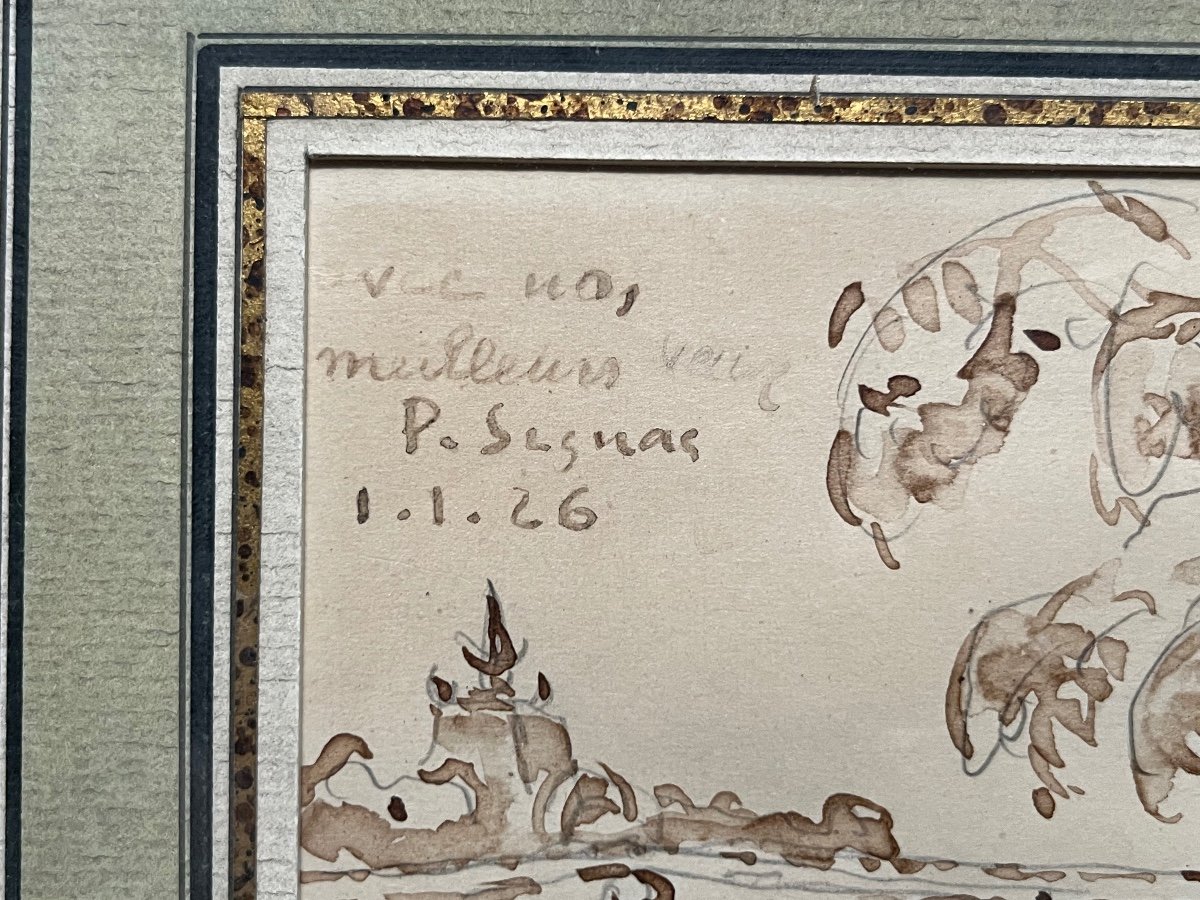 vec nos
meilleurs vœux
P. Signac
1.1.26